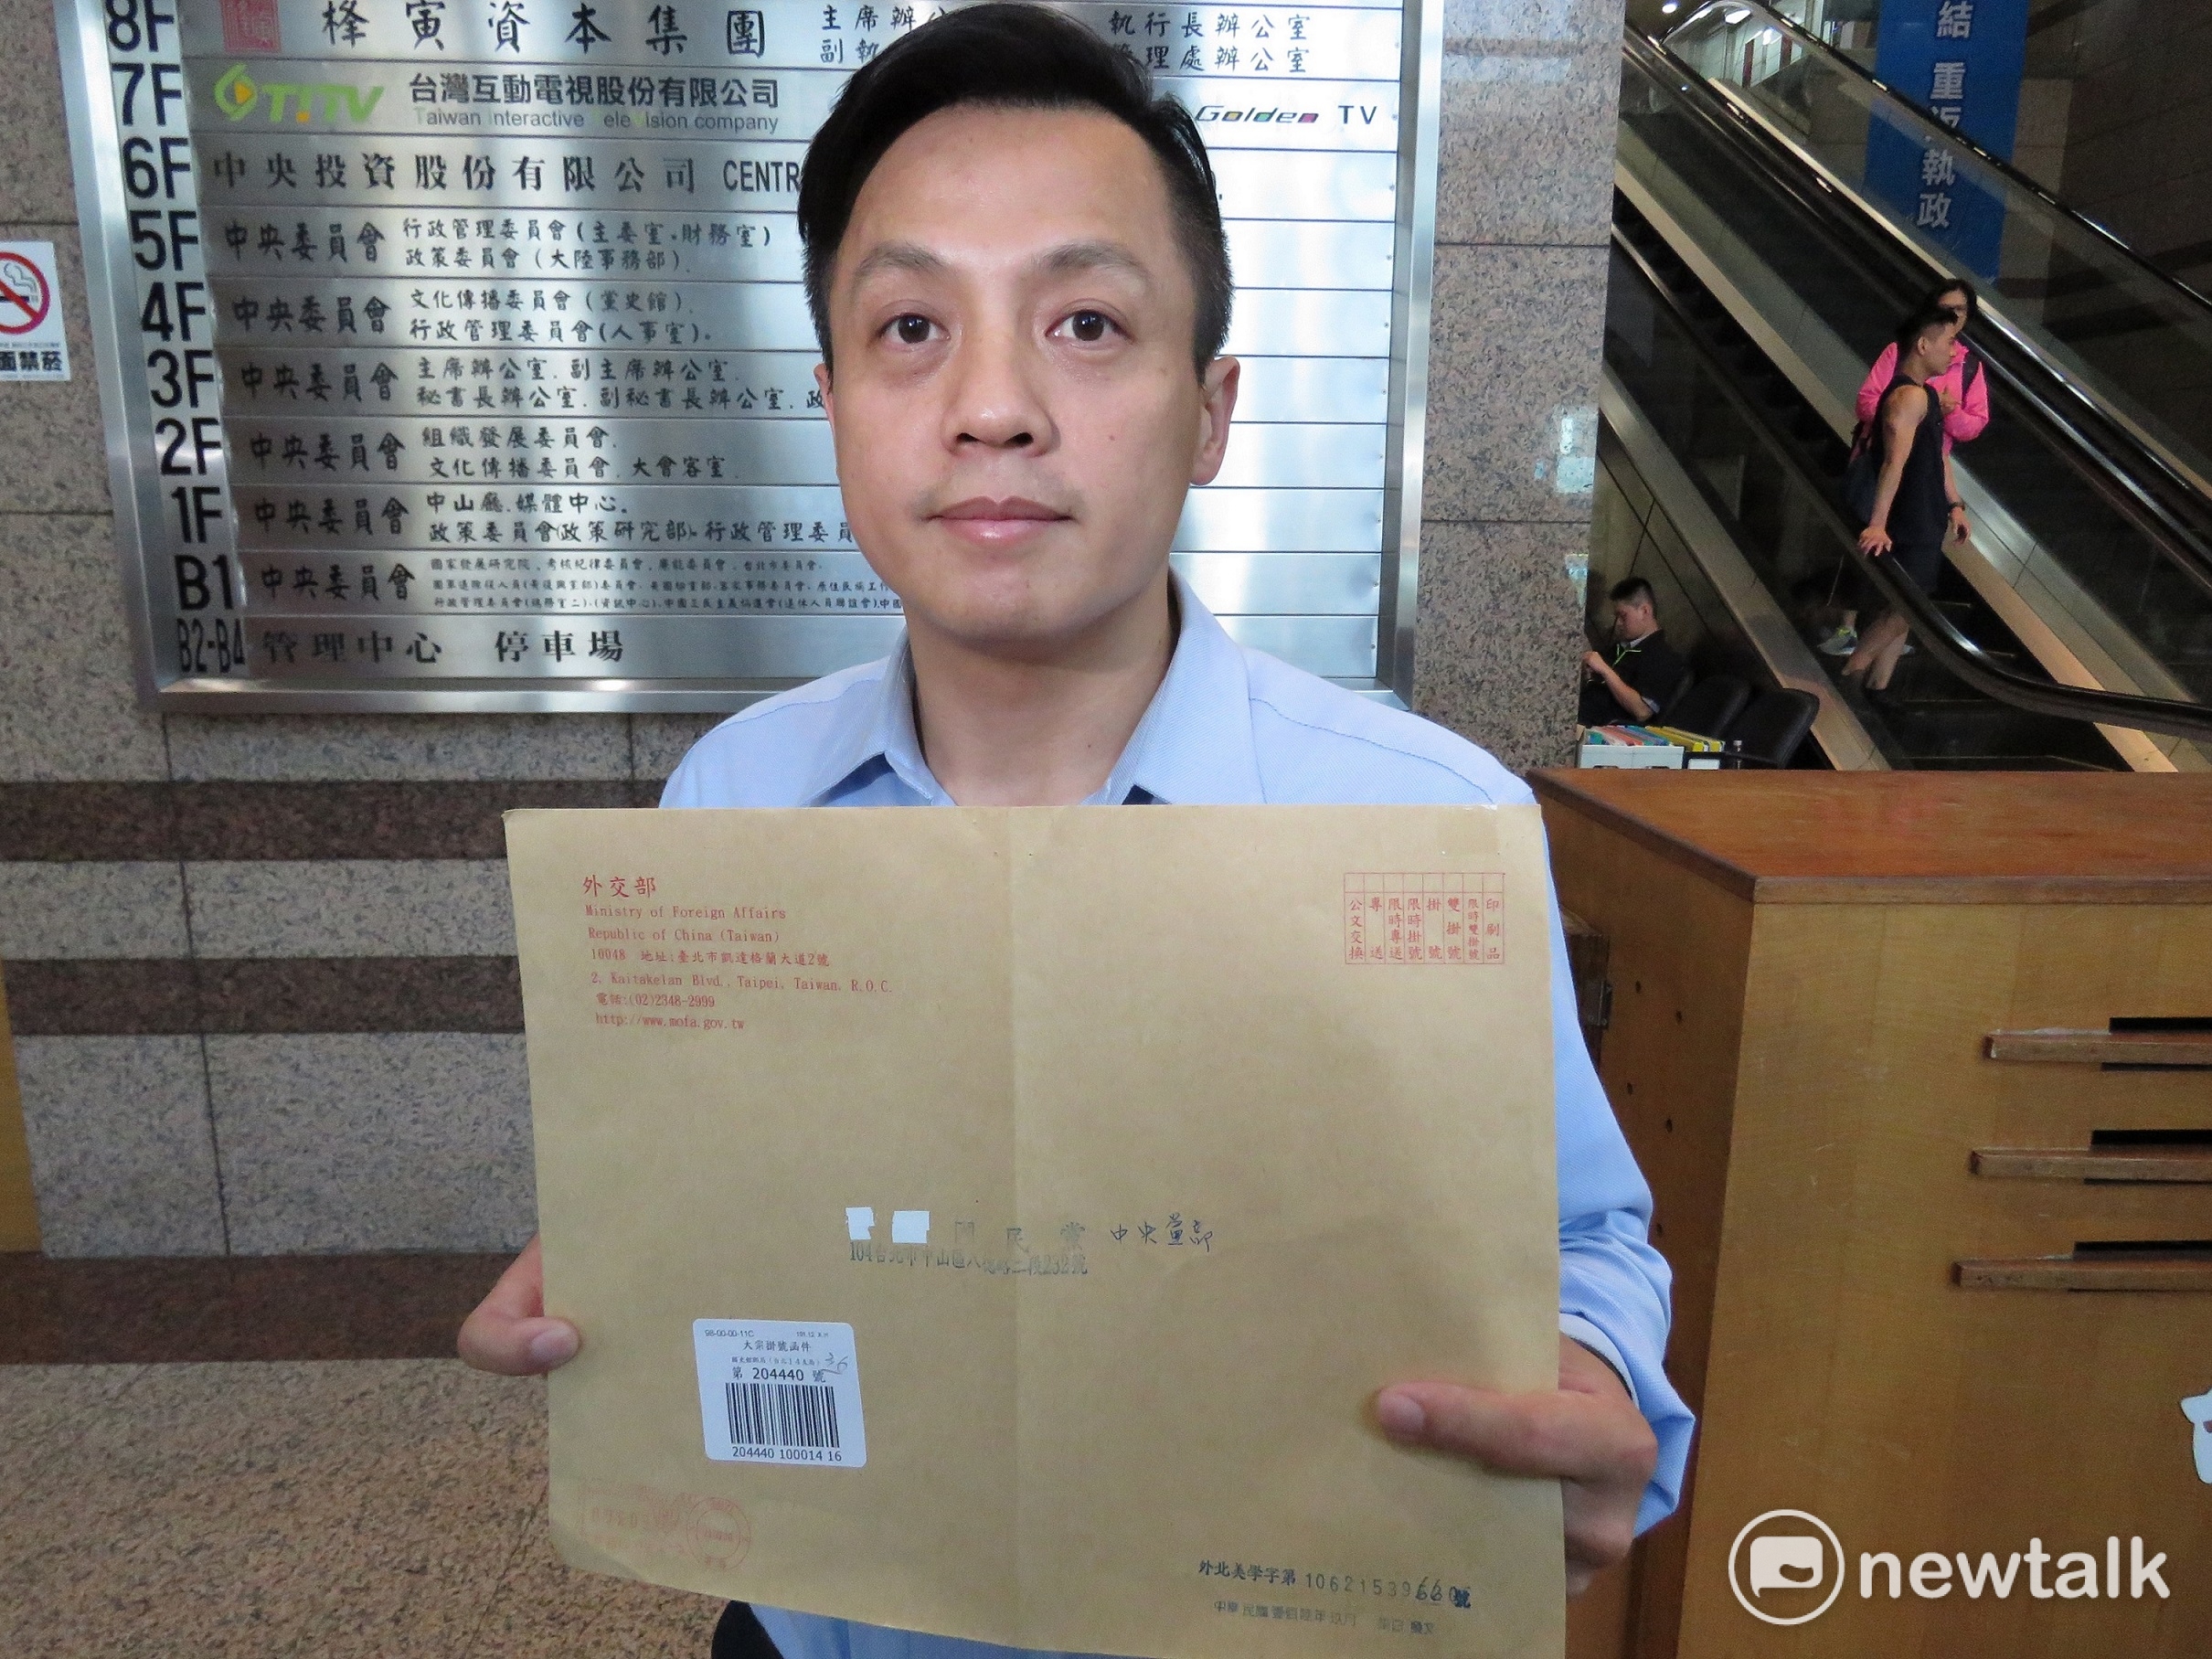 8F 峰寅資本集團 主席辦公 執行長辦公室
副執 管理處辦公室
7F TiTV 台灣互動電視股份有限公司 Golden TV
Taiwan Interactive TeleVision company
6F 中央投資股份有限公司 CENTR
5F 中央委員會 行政管理委員會(主委室、財務室)
政策委員會(大陸事務部).
4F 中央委員會 文化傳播委員會(黨史館).
行政管理委員會(人事室)。
3F 中央委員會 主席辦公室.副主席辦公室.
秘書長辦公室.副秘書長辦公室.政
2F 中央委員會 組織發展委員會.
文化傳播委員會.大會客室.
1F 中央委員會 中山廳.媒體中心。
政策委員會(政策研究部)、行政管理委員
B1 中央委員會 國家發展研究院、考核紀律委員會、廉能委員會、台北市委員會.
B2-B4 管理中心 停車場
面禁菸
結 重返執政
外交部
Ministry of Foreign Affairs
Republic of China (Taiwan)
10048 地址:臺北市凱達格蘭大道2號
2, Kaitakelan Blvd., Taipei, Taiwan, R.O.C.
電話:(02)2348-2999
http://www.mofa.gov.tw
公文交換 專送 限時專送 限時掛號 掛號 雙掛號 限時雙掛號 印刷品
國民黨 中央黨部
104台北市中山區八德路二段232號
98-00-00-11C
大宗掛號函件
36
第 204440 號
204440 100014 16
外北美學字第 號
newtalk